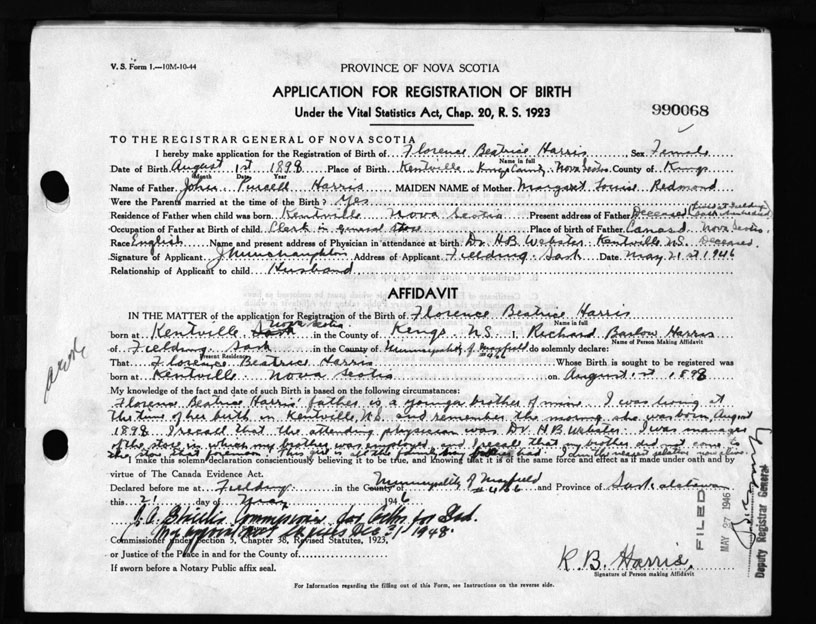 V. S. Form 1.—10M-10-44
PROVINCE OF NOVA SCOTIA
APPLICATION FOR REGISTRATION OF BIRTH
Under the Vital Statistics Act, Chap. 20, R. S. 1923
990068
TO THE REGISTRAR GENERAL OF NOVA SCOTIA
I hereby make application for the Registration of Birth of Florence Beatrice Harris, Sex Female
Name in full
Date of Birth August 1st 1898 Place of Birth Kentville Kings County Nova Scotia County of Kings
Month Date Year
Name of Father John Harris MAIDEN NAME of Mother Margaret Louise Redmond
Were the Parents married at the time of the Birth? Yes
Residence of Father when child was born Kentville Nova Scotia Present address of Father Deceased
Occupation of Father at Birth of child Clerk in general store Place of birth of Father Canard Nova Scotia
Race English Name and present address of Physician in attendance at birth Dr. H.B. Webster Kentville N.S. Deceased
Signature of Applicant Address of Applicant Fielding Sask Date May 21st 1946
Relationship of Applicant to child Husband
AFFIDAVIT
IN THE MATTER of the application for Registration of the Birth of Florence Beatrice Harris
Name in full
born at Kentville Nova Scotia in the County of Kings N.S. I, Richard Barlow Harris
Name of Person Making Affidavit
of Fielding Sask in the County of Municipality of Mayfield #406 do solemnly declare:
Present Residence
That Florence Beatrice Harris Whose Birth is sought to be registered was
born at Kentville Nova Scotia on August 1st 1898
My knowledge of the fact and date of such Birth is based on the following circumstances:
Florence Beatrice Harris' father is a younger brother of mine. I was living at
the time of her birth in Kentville, N.S. and remember the morning she was born, August
1898. I recall that the attending physician was Dr. H.B. Webster. I was manager
of the store in which my brother was employed and I recall that my brother did not come to
the store that forenoon. This girl is all the family my brother had. I am the nearest relation now alive.
I make this solemn declaration conscientiously believing it to be true, and knowing that it is of the same force and effect as if made under oath and by
virtue of The Canada Evidence Act.
Declared before me at Fielding in the County Municipality of Mayfield #406 and Province of Saskatchewan
this 21 day of May 1946
Commissioner for Oaths for Sask.
My appointment expires Dec 31 1948
Commissioner under Section 5, Chapter 50, Revised Statutes, 1923,
or Justice of the Peace in and for the County of
If sworn before a Notary Public affix seal.
R. B. Harris
Signature of Person making Affidavit
FILED
MAY 27 1946
Deputy Registrar General
For Information regarding the filling out of this Form, see Instructions on the reverse side.